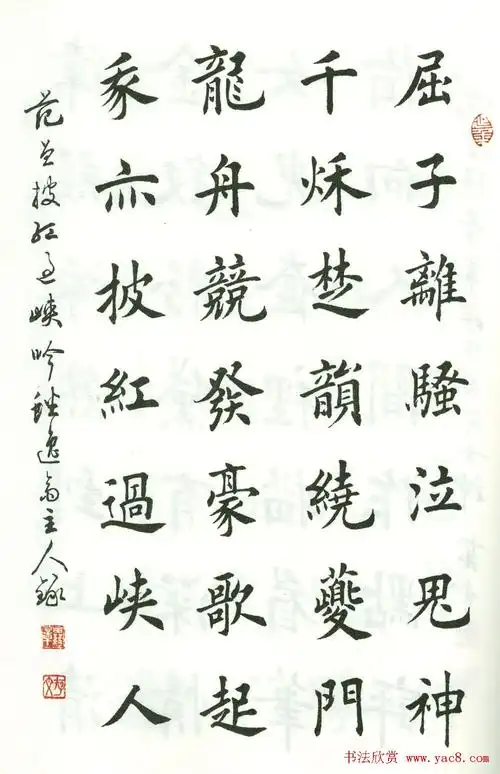 屈子離騷泣鬼神
千秌楚韻繞夔門
龍舟競發豪歌起
我亦披紅過峽人
范披紅過峽吟逸翁主人錄
书法欣赏 www.yac8.com